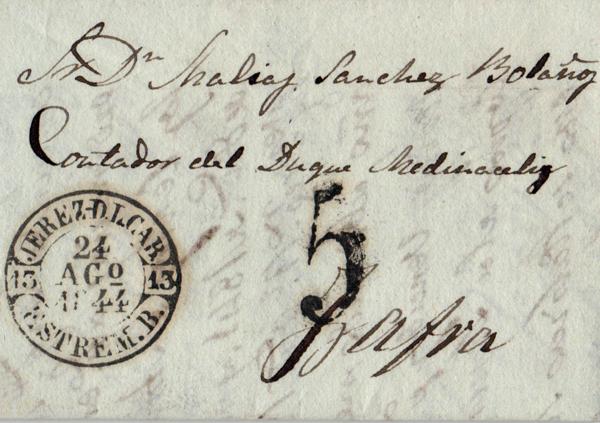 Sr Dn Matias Sanchez Bolaños
Contador del Duque Medinaceli
JEREZ-D.L.CAB.
24
AGO
1844
13
13
ESTREM. B.
5
Zafra